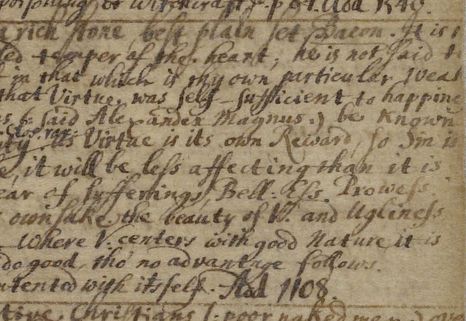 or Witchcraft p. 64. Add 1549.
a rich stone best plain set Bacon. It is
temper of the heart; he is not said t
in that which is thy own particular weak
that Virtue was self-sufficient to happine
said Alexander Magnus.) be known
Virtue is its own Reward, so Sin is
e, it will be less affecting than it is
ear of sufferings, Bell. Ess. Prowess.
own sake, the beauty of V. and Ugliness
Where V. centers with good Nature it is
do good, tho' no advantage follows.
ntented with itself. Add 1108.
Christians (. poor naked men) over